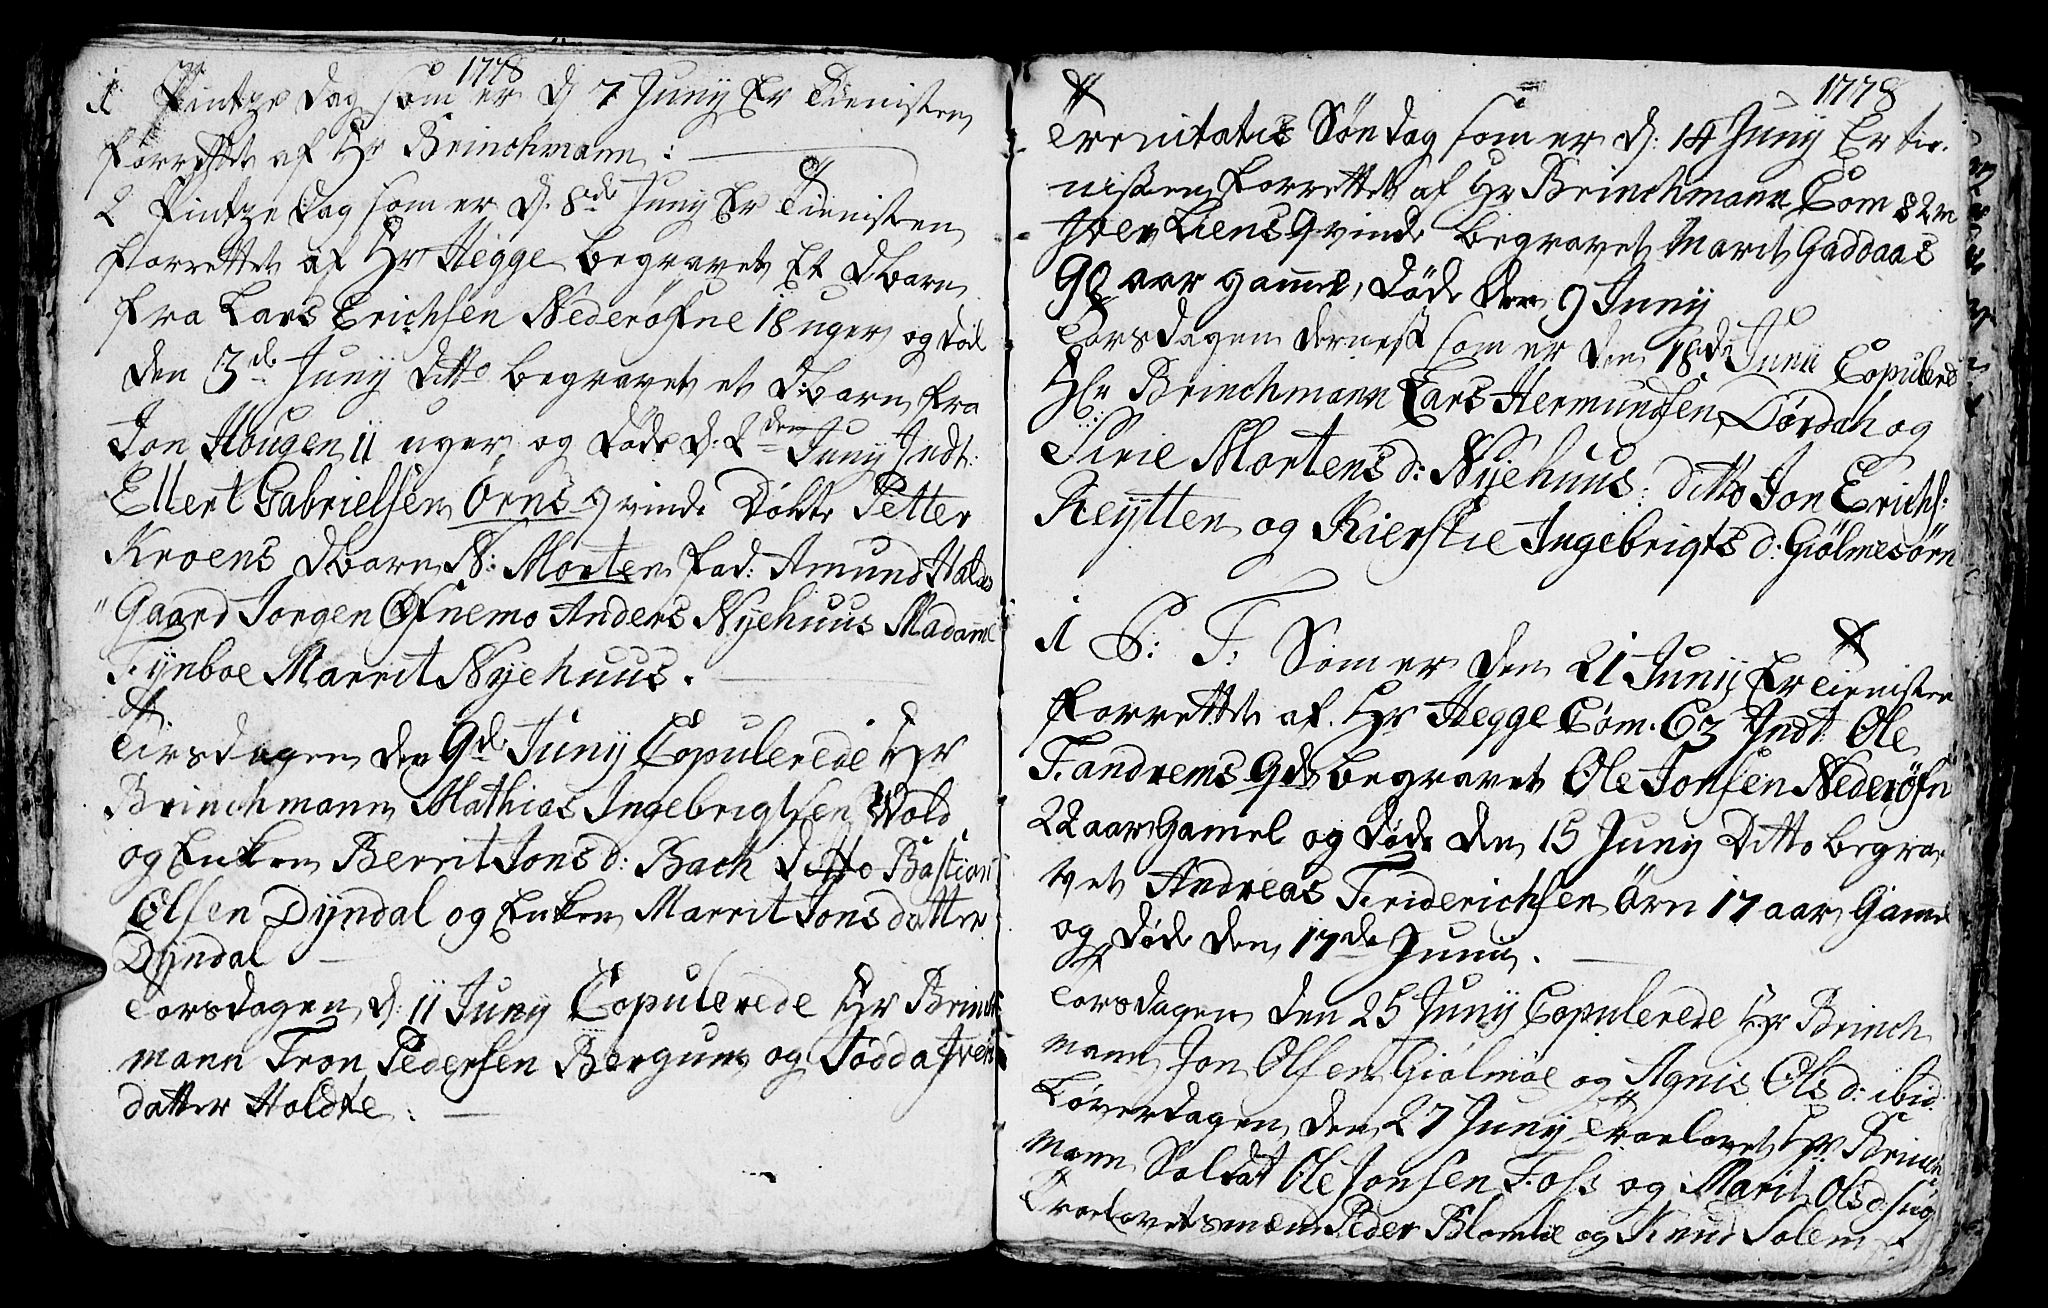 1778
1 Pintze Dag som er d 7 Juny Er Tienisten
forrettet af Hr Brinchmann :
2 Pintze Dag som er d. 8de Juny Er Tienisten
forrettet af Hr Hegge begravet Et Dbarn
fra Lars Erichsen Nederøfne 18 uger og död
den 3de Juny ditto begravet et Dbarn fra
Jon Hougen 11 uger og döde d: 2den Juny Indt:
Ellert Gabrielsen Örns qvinde Döbte Petter
Kroens Dbarn N: Morten fad: Amund Halds
Gaard Jorgen Öfnemo Anders Nyehuus Madame
Tynboe Marrit Nyehuus.
Tirsdagen den 9de Juny Copulerede Hr
Brinchmann Mathias Ingebrigtsen Wold
og Enken Berrit Jonsd: Bach ditto Bastian
Olsen Dyndal og Enken Marrit Jonsdatter
Dyndal
Torsdagen d: 11 Juny Copulerede Hr Brinch
mann Tron Pedersen Bergum og Södda Iver
datter Holdte :
1778
Trenitatis Söndag som er d: 14 Juny Er tie-
nisten forrettet af Hr Brinchmann Com 82
Iver Liens qvinde begravet Marit Gaddaas
90 aar gammel, döde den 9 Juny
Torsdagen dernest som er den 18de Junii Copulered
Hr Brinchmann Lars Hermundsen Dördah og
Sirie Mortens d: Nyehuus: ditto Jon Erichs:
Reytten og Kierstie Ingebrigts d: Giölmesörn
1 S: T: Som er den 21 Juny Er Tienisten
forrettet af Hr Hegge Com. 63 Indt. Ole
Tandrems qde begravet Ole Jonsen Nederöfn
22 aar Gamel og döde den 15 Juny Ditto begra-
vet Andreas Friderichsen Örn 17 aar Gamel
og döde den 17de Juni.
Torsdagen den 25 Juny Copulerede Hr Brinch
mann Jon Olsen Giölmöe og Agnis Olsd: ibid:
Löverdagen den 27 Juny Troelovet Hr Brinch
mann Soldat Ole Jonsen Foss og Marit Olsd:
Troelovetsmænd Peder Blomlie og Knud Solem